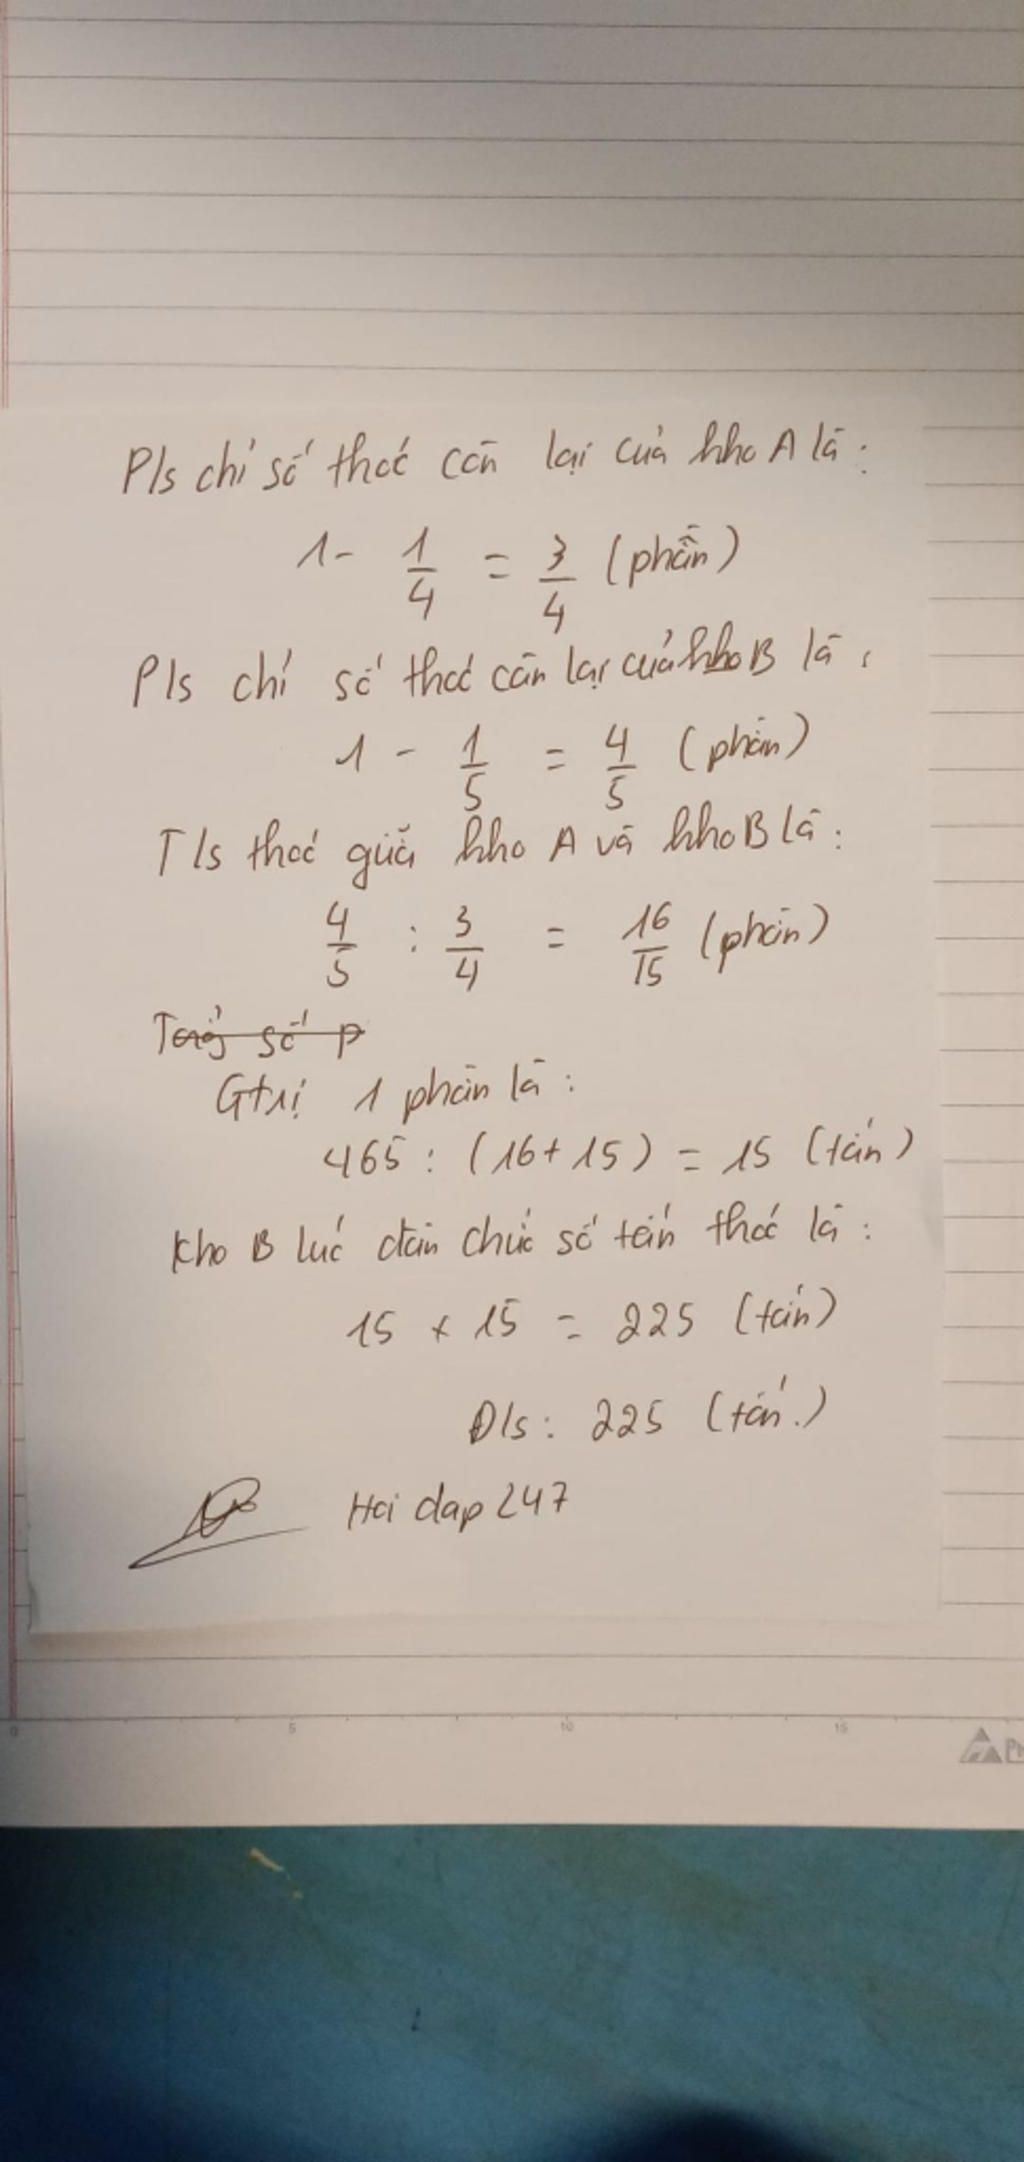 Pls chỉ số thóc còn lại của kho A là:
1 - 1/4 = 3/4 (phần)
Pls chỉ số thóc còn lại của kho B là:
1 - 1/5 = 4/5 (phần)
Tls thóc giữa kho A và kho B là:
4/5 : 3/4 = 16/15 (phần)
Tổng số p
Gtrị 1 phần là:
465 : (16+15) = 15 (tấn)
Kho B lúc đầu chứa số tấn thóc là:
15 x 15 = 225 (tấn)
Đ/s: 225 (tấn.)
Hoi dap 247
0 5 10 15